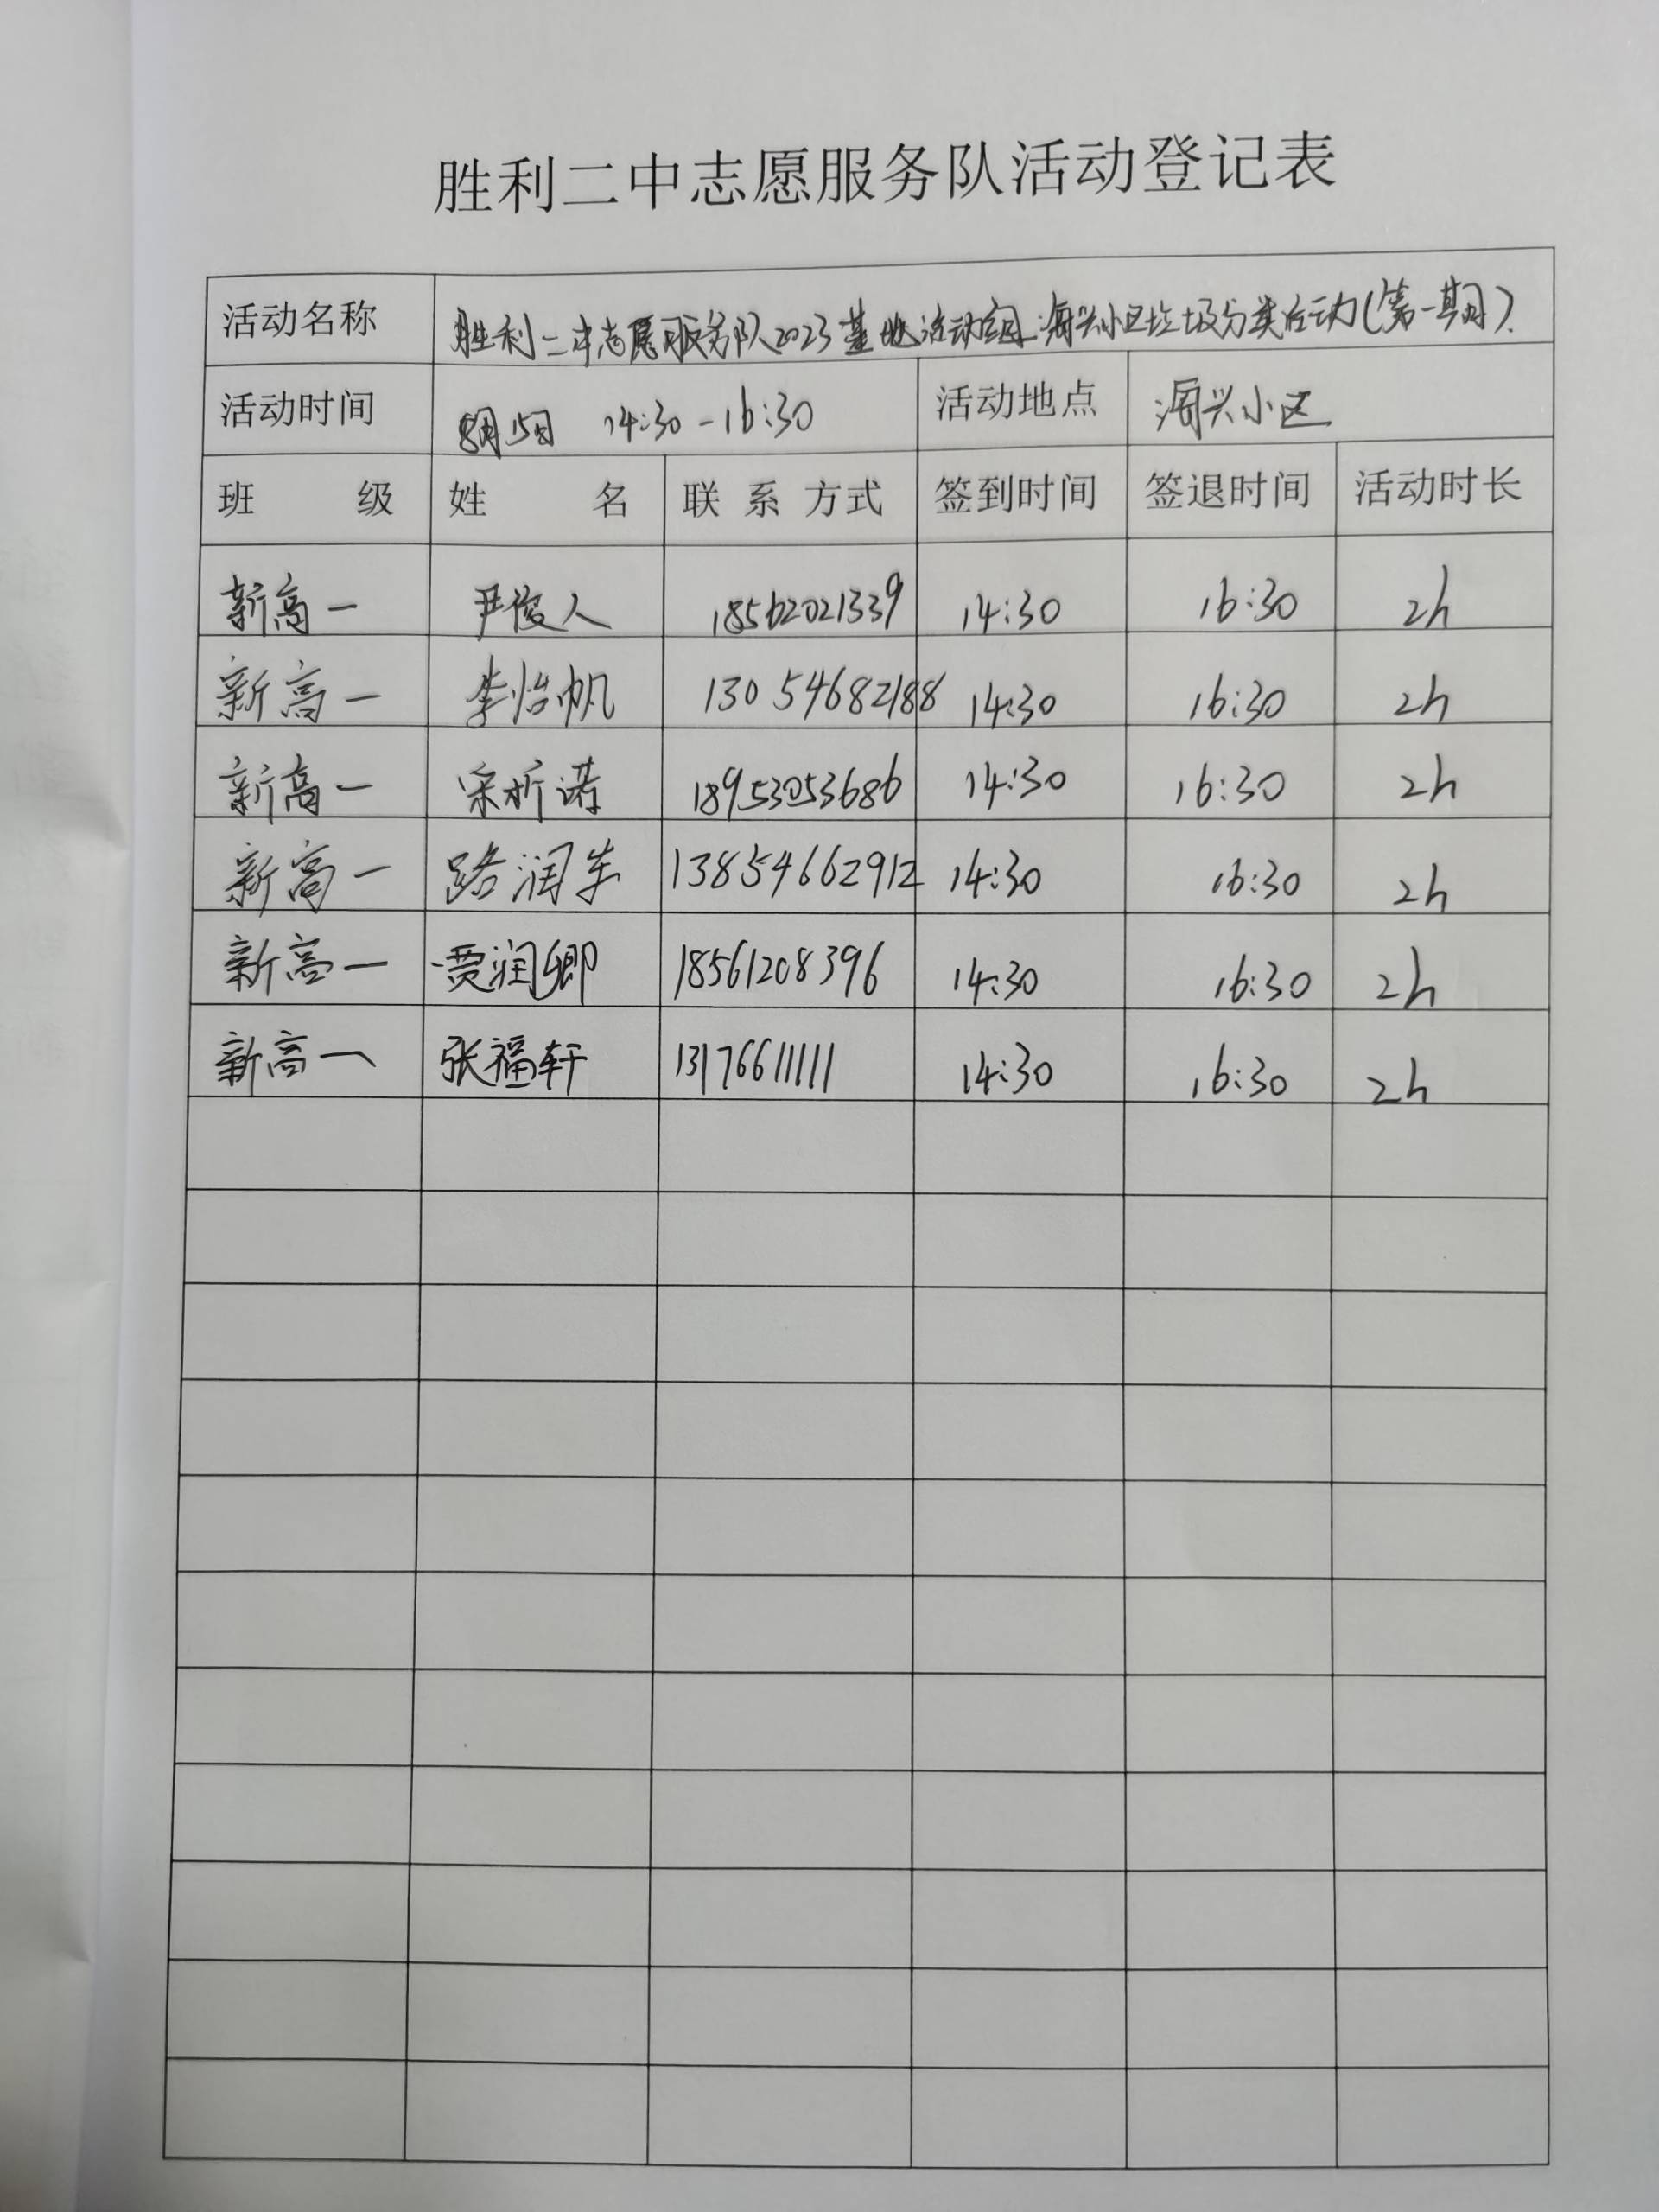 胜利二中志愿服务队活动登记表
活动名称 胜利二中志愿服务队2023基地活动 海兴小区垃圾分类活动(第一期).
活动时间 8月15日 14:30-16:30 活动地点 海兴小区
班 级 姓 名 联 系 方式 签到时间 签退时间 活动时长
新高一 尹俊人 18562021339 14:30 16:30 2h
新高一 李怡帆 130 54682188 14:30 16:30 2h
新高一 宋析诺 18953053686 14:30 16:30 2h
新高一 路润东 13854662912 14:30 16:30 2h
新高一 贾润卿 18561208396 14:30 16:30 2h
新高一 张福轩 13176611111 14:30 16:30 2h